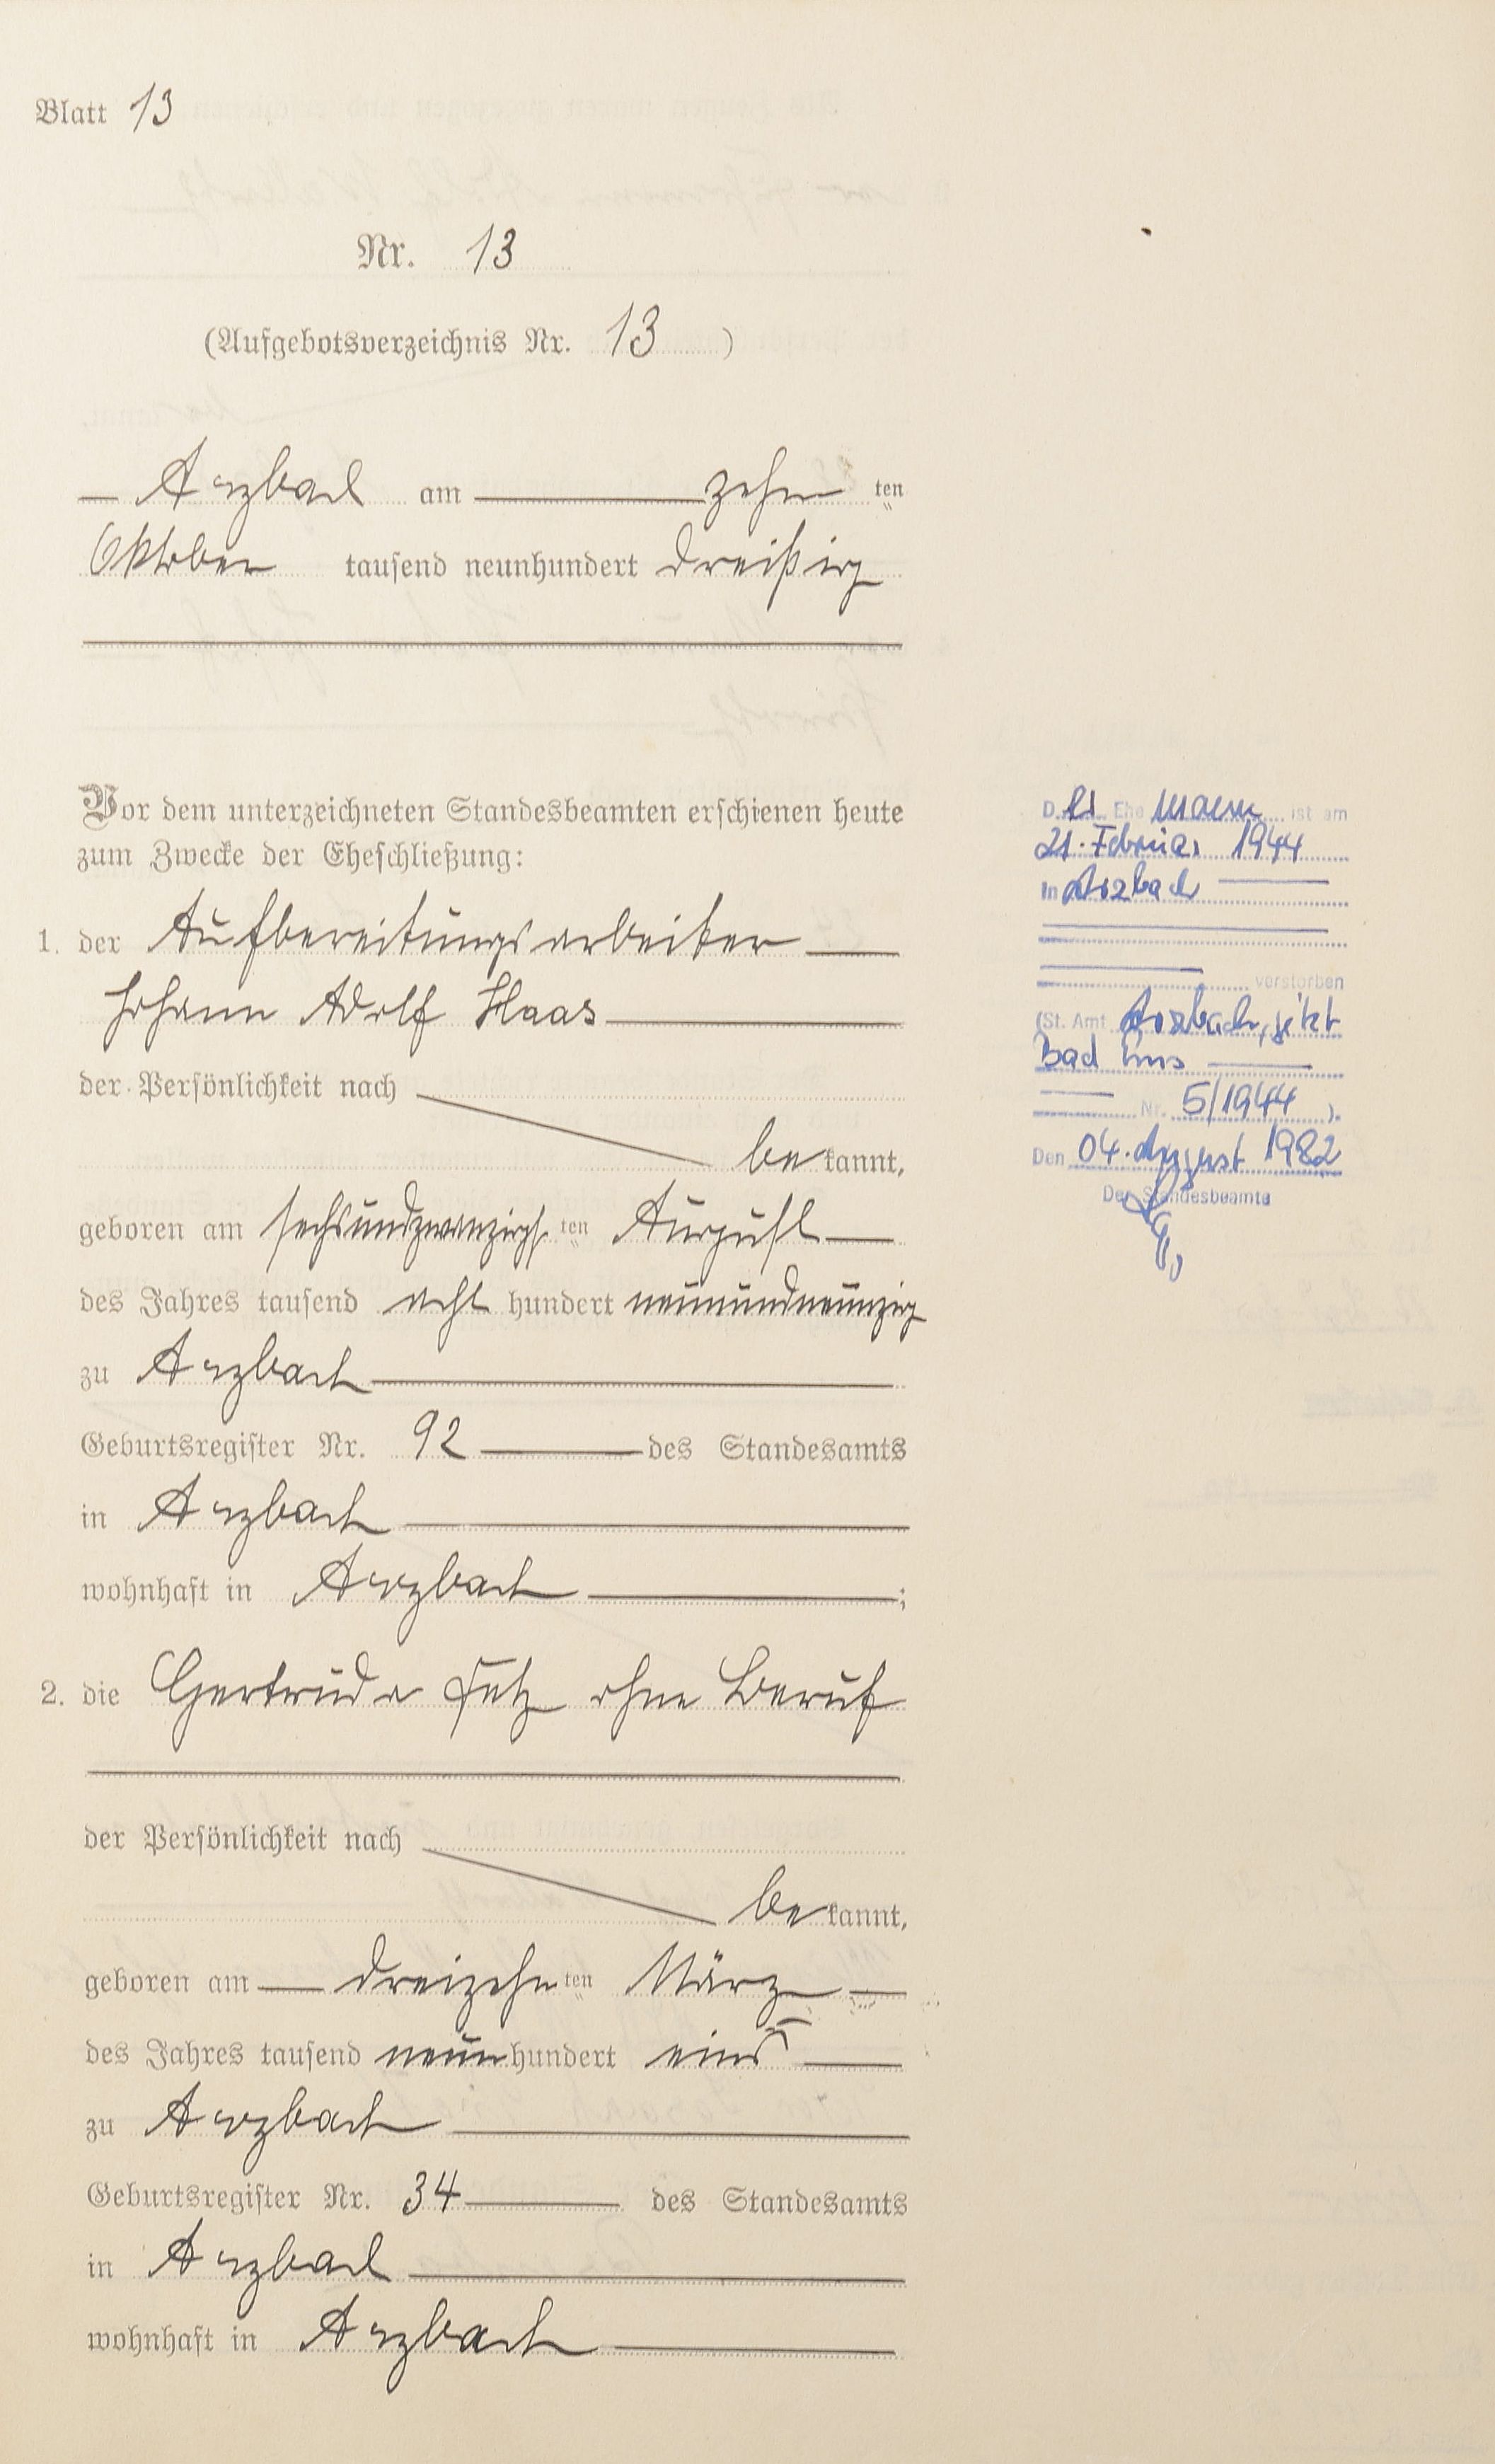 Blatt 13
Nr. 13
(Aufgebotsverzeichnis Nr. 13 )
Arzbach am zehn ten
Oktober tausend neunhundert dreißig
Vor dem unterzeichneten Standesbeamten erschienen heute
zum Zwecke der Eheschließung:
1. der Aufbereitungsarbeiter
Johann Adolf Haas
der Persönlichkeit nach
be kannt,
geboren am sechsundzwanzigs ten August
des Jahres tausend acht hundert neunundneunzig
zu Arzbach
Geburtsregister Nr. 92 des Standesamts
in Arzbach
wohnhaft in Arzbach ;
2. die Gertruda Fetz ohne Beruf
der Persönlichkeit nach
be kannt,
geboren am dreizehn ten März
des Jahres tausend neun hundert eins
zu Arzbach
Geburtsregister Nr. 34 des Standesamts
in Arzbach
wohnhaft in Arzbach
D er Ehe mann ist am
21. Februar 1944
in Arzbach
verstorben
(St. Amt Arzbach, jetzt
Bad Ems
Nr. 5/1944 ).
Den 04. August 1982
Der Standesbeamte